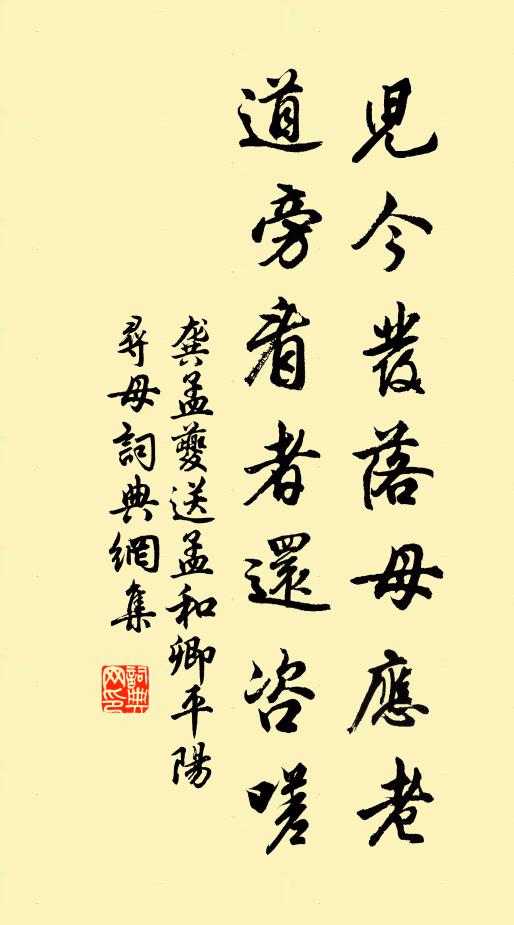 兒今發落母應老
道旁看者還咨嗟
龔孟夔送孟和卿平陽
尋母詞典網集
詞典
网印